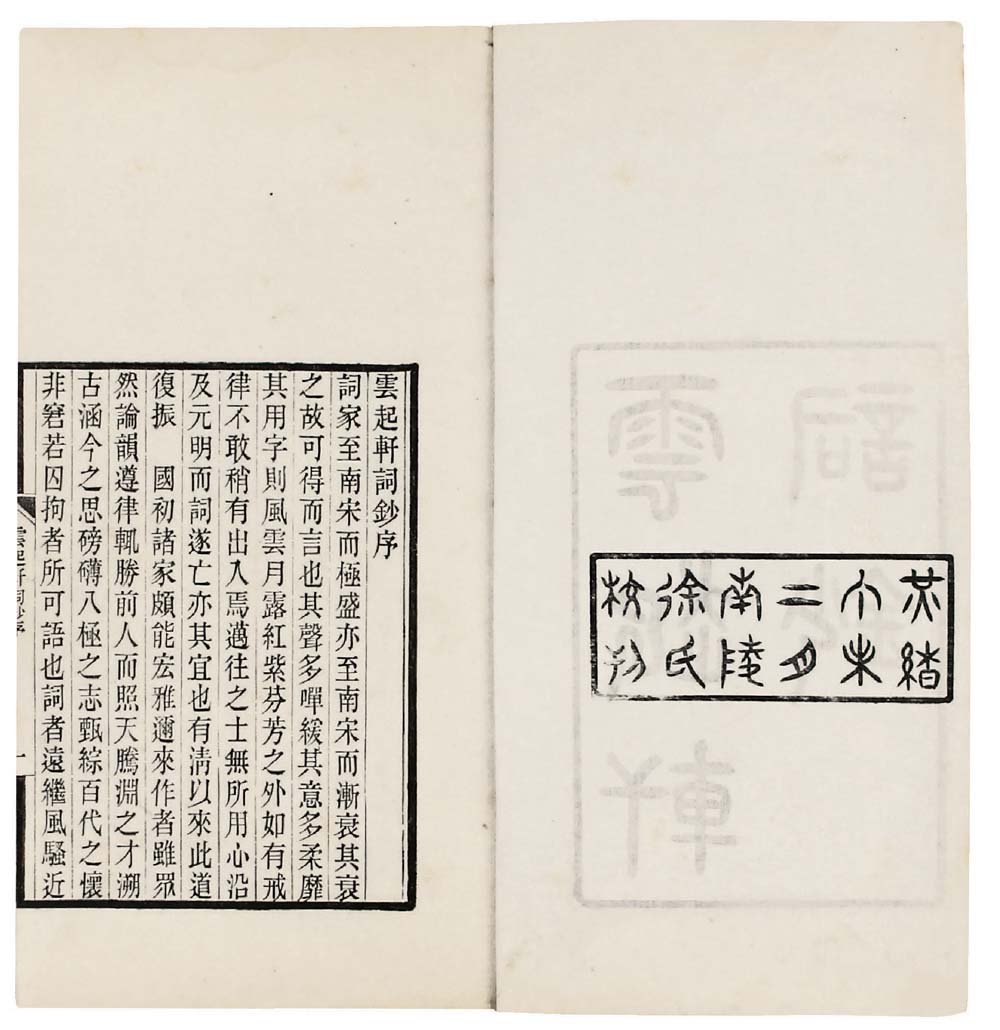 光緒
丁未
二月
南陵
徐氏
校刊
雲起軒詞鈔序
詞家至南宋而極盛亦至南宋而漸衰其衰
之故可得而言也其聲多嘽緩其意多柔靡
其用字則風雲月露紅紫芬芳之外如有戒
律不敢稍有出入焉邁往之士無所用心沿
及元明而詞遂亡亦其宜也有淸以來此道
復振　國初諸家頗能宏雅邇來作者雖眾
然論韻遵律輒勝前人而照天騰淵之才溯
古涵今之思磅礴八極之志甄綜百代之懷
非窘若囚拘者所可語也詞者遠繼風騷近
雲起軒詞鈔序
一